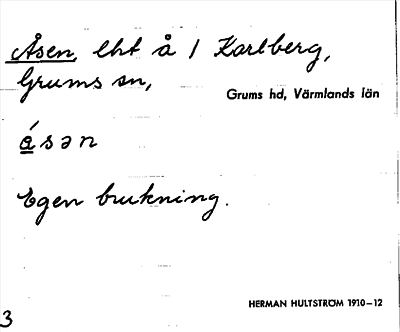 Åsen, lht å 1 Karlberg,
Grums sn,
Grums hd, Värmlands län
åsən
Egen brukning.
HERMAN HULTSTRÖM 1910–12
3